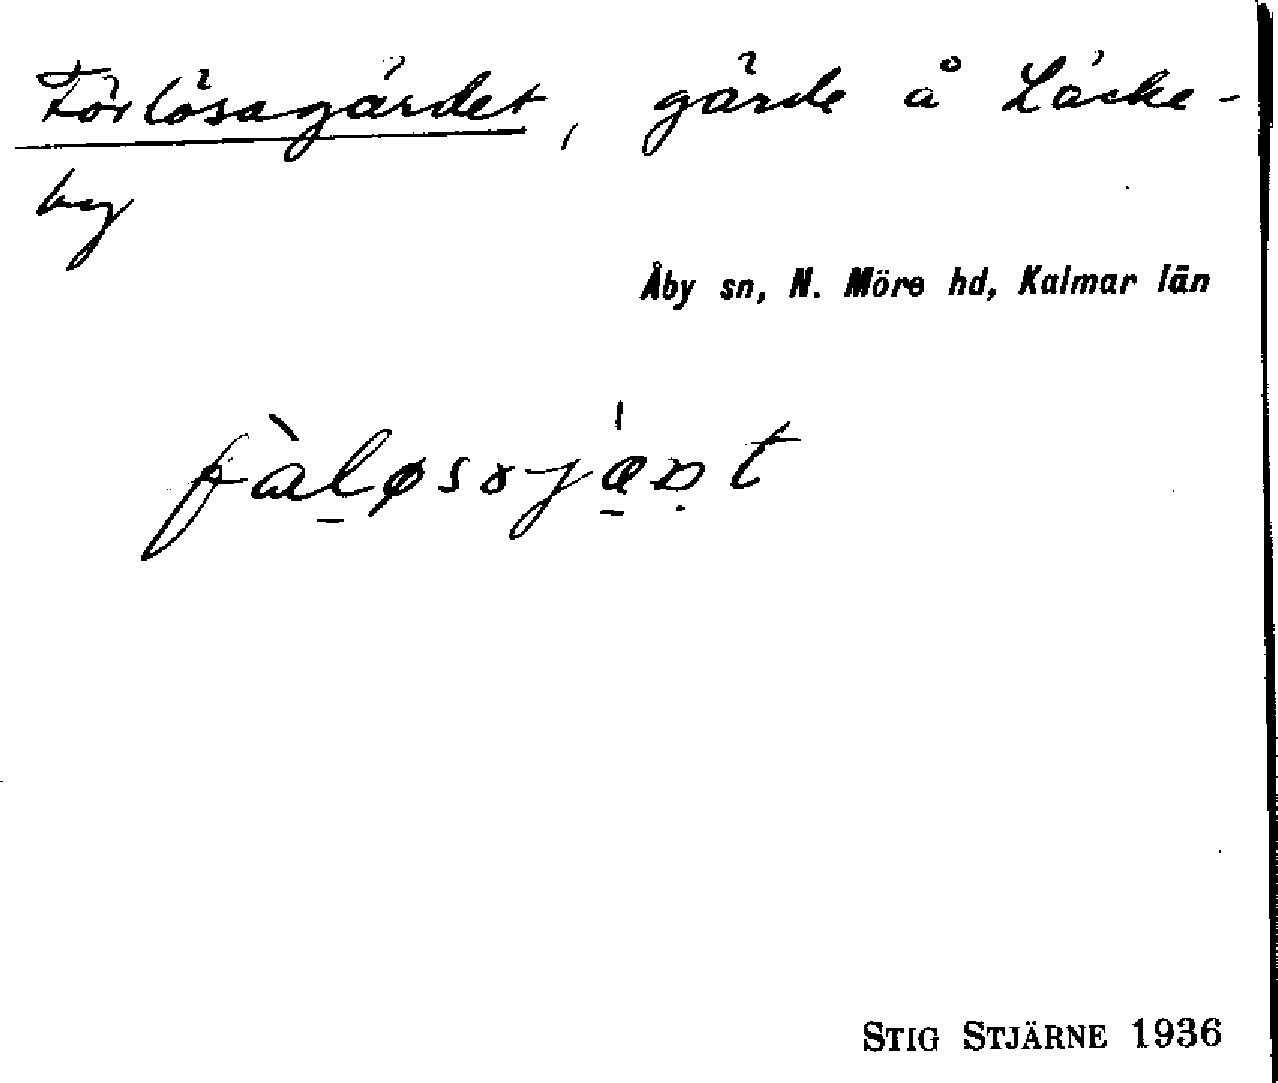 Förlösagärdet, gärde å Läcke-
by
Åby sn, N. Möre hd, Kalmar län
STIG STJÄRNE 1936